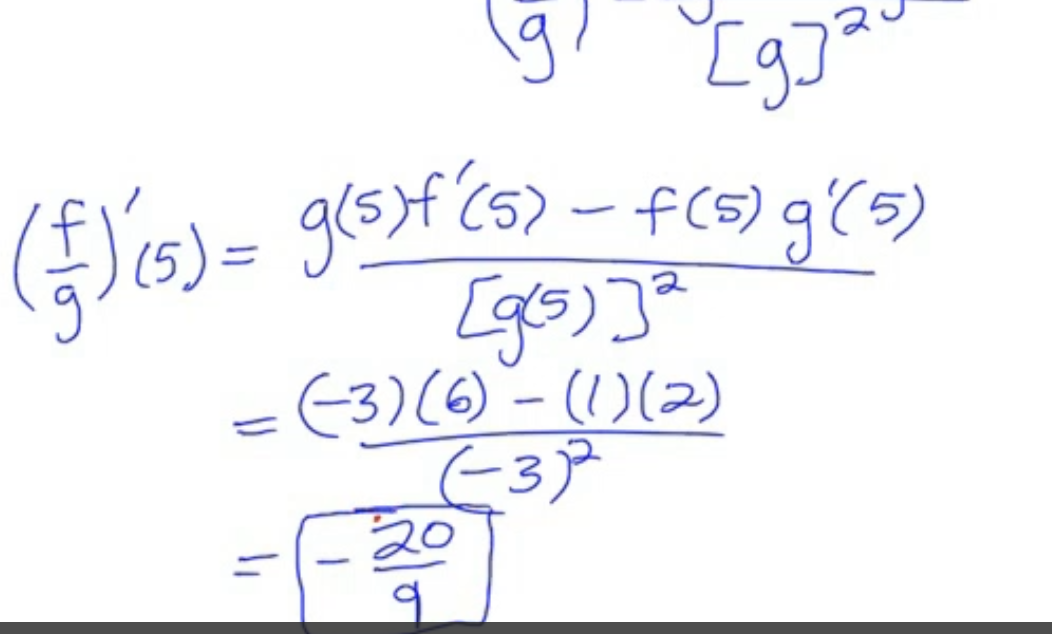 (f/g) [g]²
(f/g)'(5) = g(5)f'(5) - f(5)g'(5) / [g(5)]²
= (-3)(6) - (1)(2) / (-3)²
= - 20/9